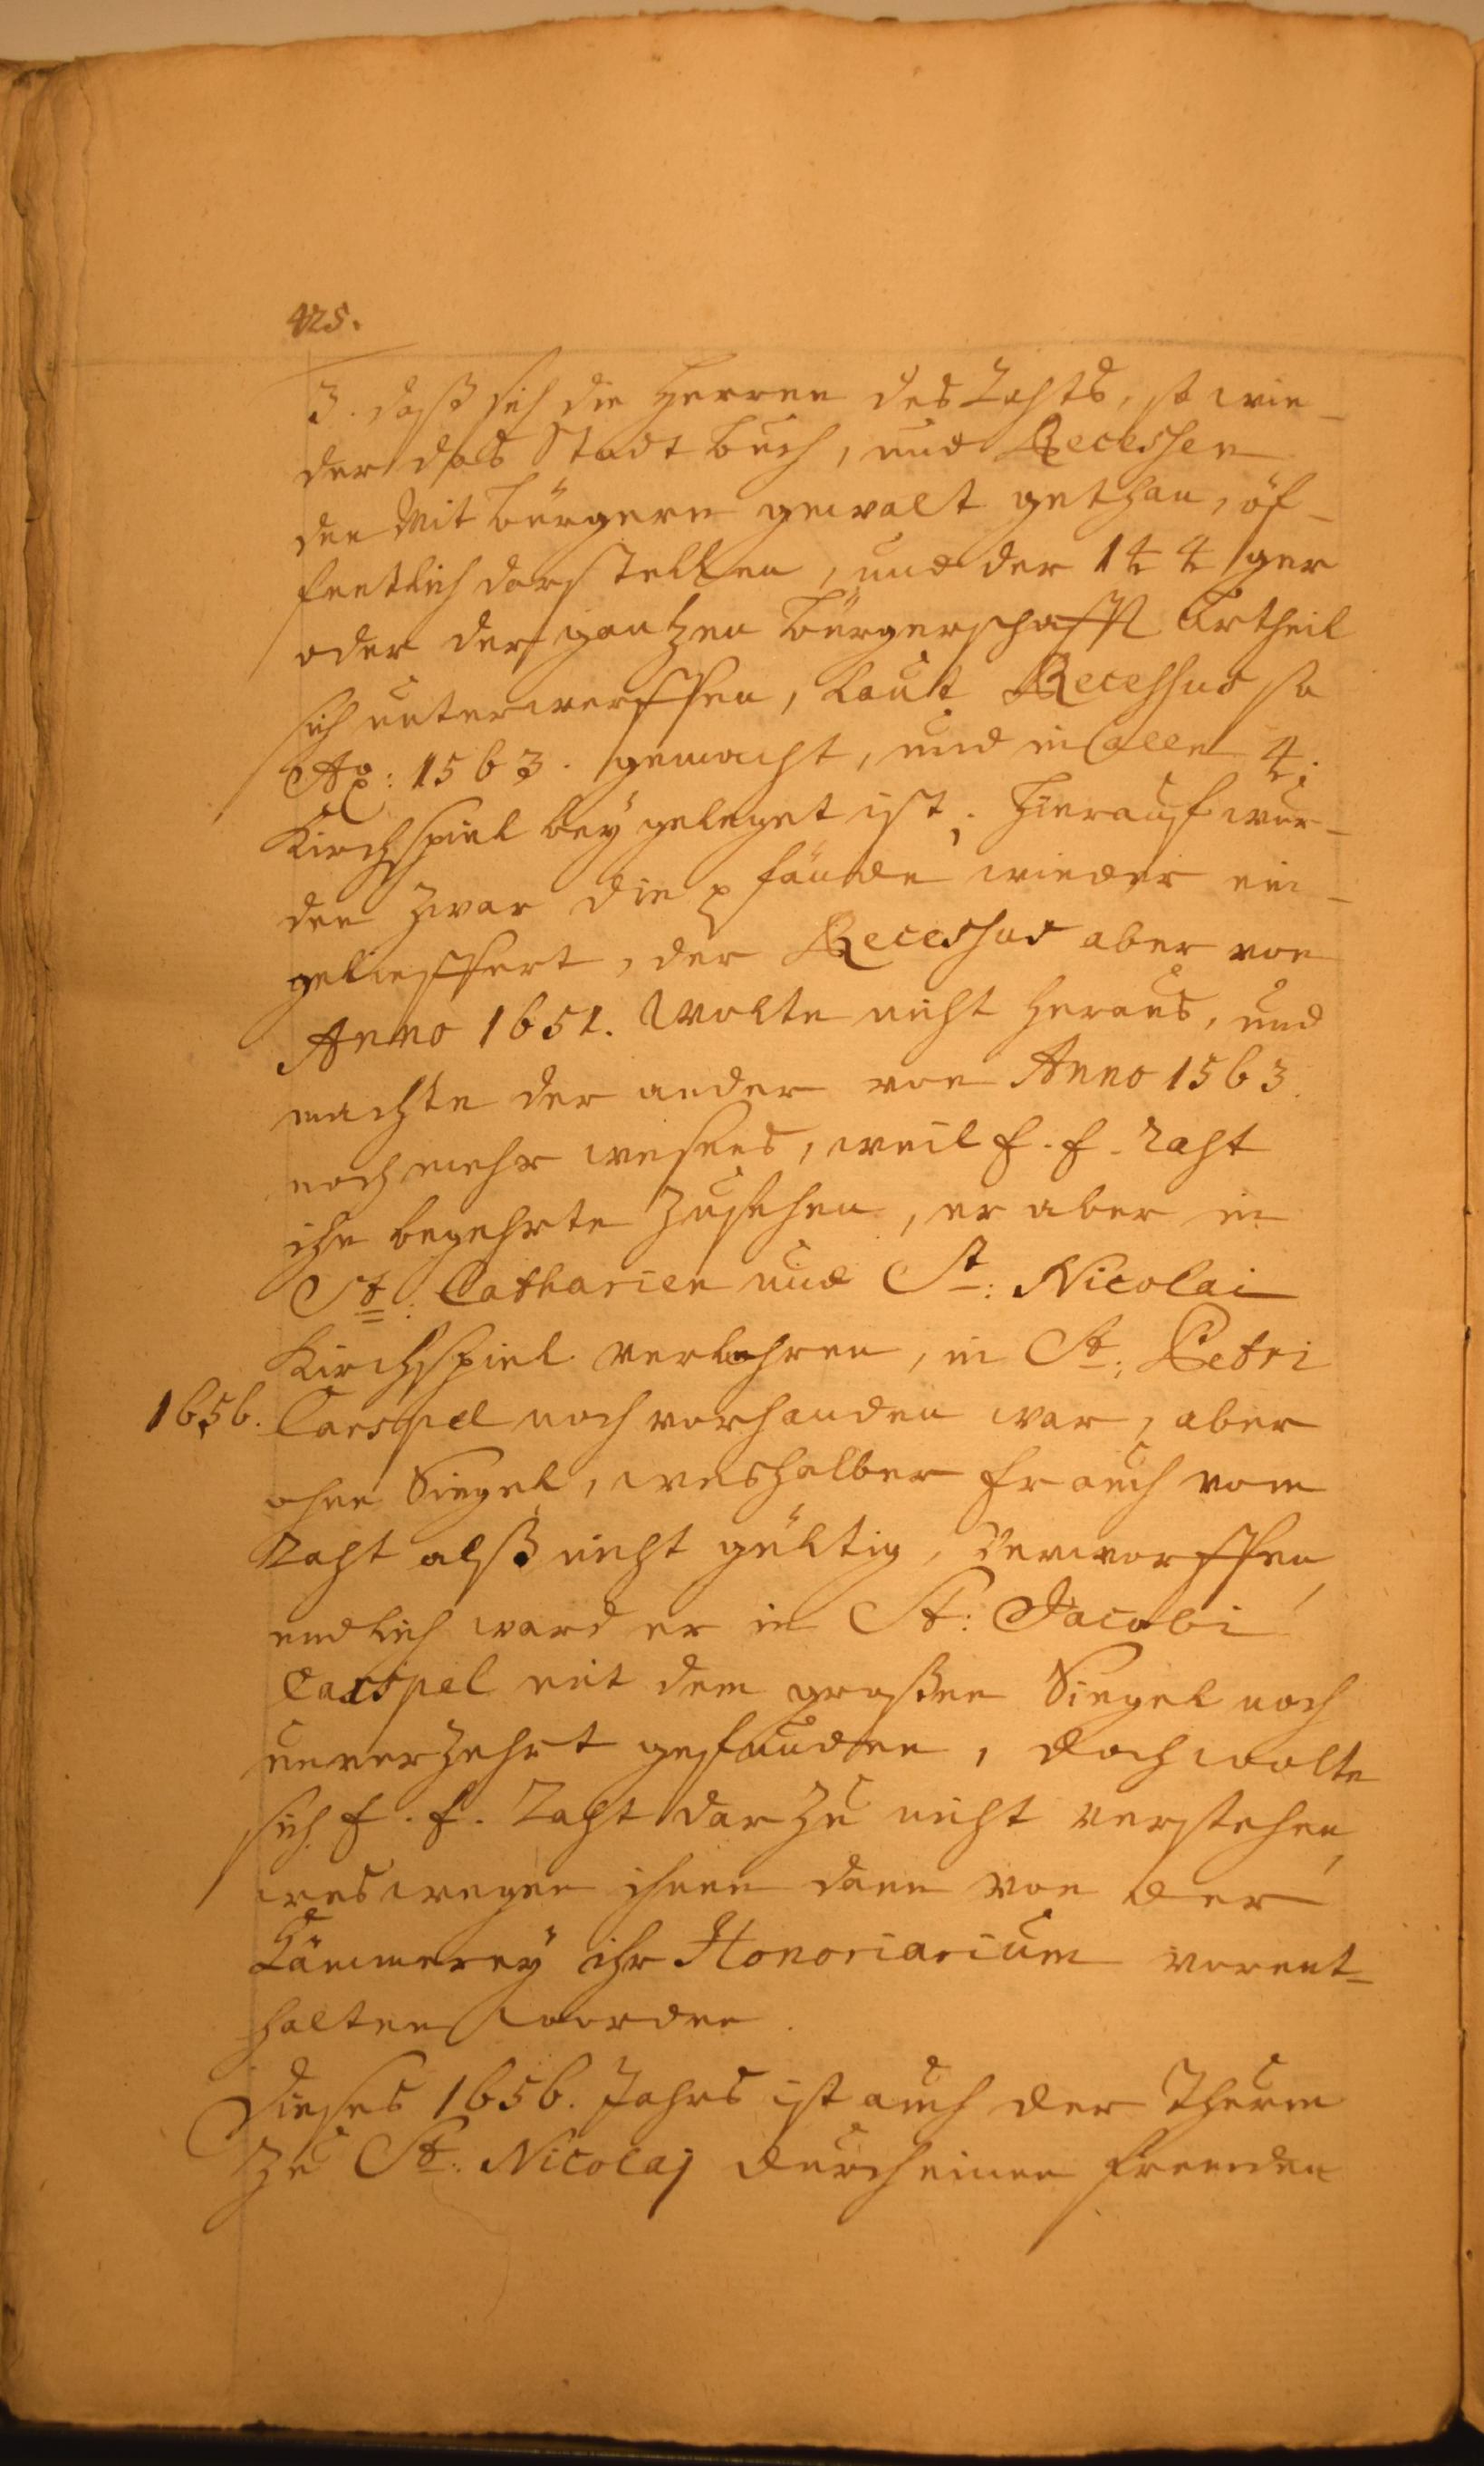 425.
3. daß sich die Herren des Rahts, so wie-
der das Stadt buch, und Recessen
den Mit bürgern gewalt gethan, öf-
fentlich darstellen, und der 144 ger
oder der gantzen bürgerschafft Urtheil
sich unterwerffen, laut Recessus so
Ao: 1563. gemacht, und in allen 4.
Kirchspiel beÿ geleget ist; Hierauf wur-
den zwar die pfände wieder ein-
gelieffert, der Recessus aber von
Anno 1651. wolte nicht heraus, und
machte der ander von Anno 1563.
noch mehr wesens, weil E. E. Raht
ihn begehrte zusehen, er aber in
St: Catharien und St: Nicolai
Kirchspiel verlohren, in St: Petri
1656. Carspel noch vorhanden war, aber
ohne Siegel, weshalber Er auch vom
Raht alß nicht gültig, verworffen,
endlich ward er in St: Jacobi
Carspel mit dem großen Siegel noch
unverzehrt gefunden, doch wolte
sich E. E. Raht dar zu nicht verstehen,
weswegen ihnen dann von der
Kämmereÿ ihr Honoriarium vorent-
halten worden.
Dieses 1656. Jahrs ist auch der Thurm
zu St: Nicolaj durch einen fremden